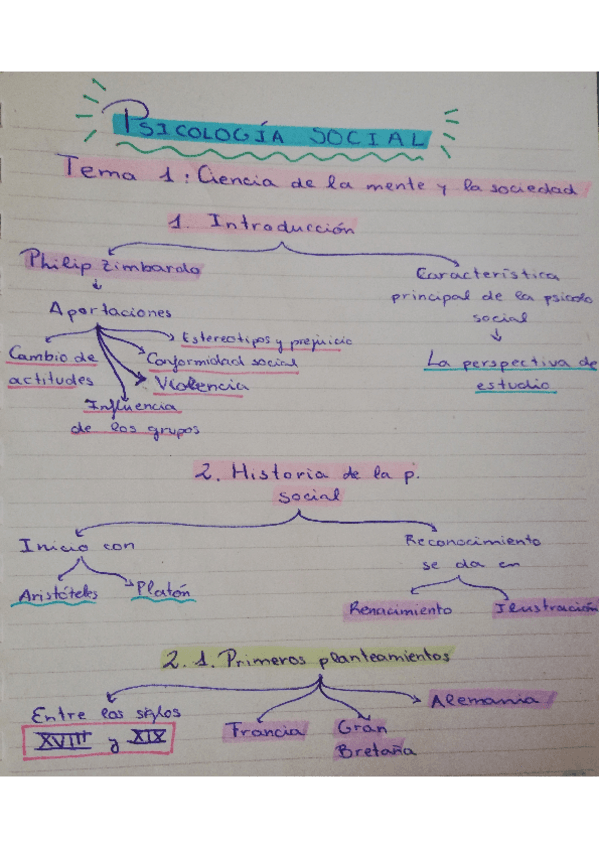 PSICOLOGÍA SOCIAL
Tema 1: Ciencia de la mente y la sociedad
1. Introducción
Philip Zimbardo
Aportaciones
Cambio de
actitudes
Estereotipos y prejuicio
Conformidad social
Violencia
Influencia
de los grupos
Característica
principal de la psicolo
social
La perspectiva de
estudio
2. Historia de la p.
social
Inicio con
Aristóteles
Platón
Reconocimiento
se da en
Renacimiento
Ilustración
2.1. Primeros planteamientos
Entre los siglos
XVIII y XIX
Francia
Gran
Bretaña
Alemania